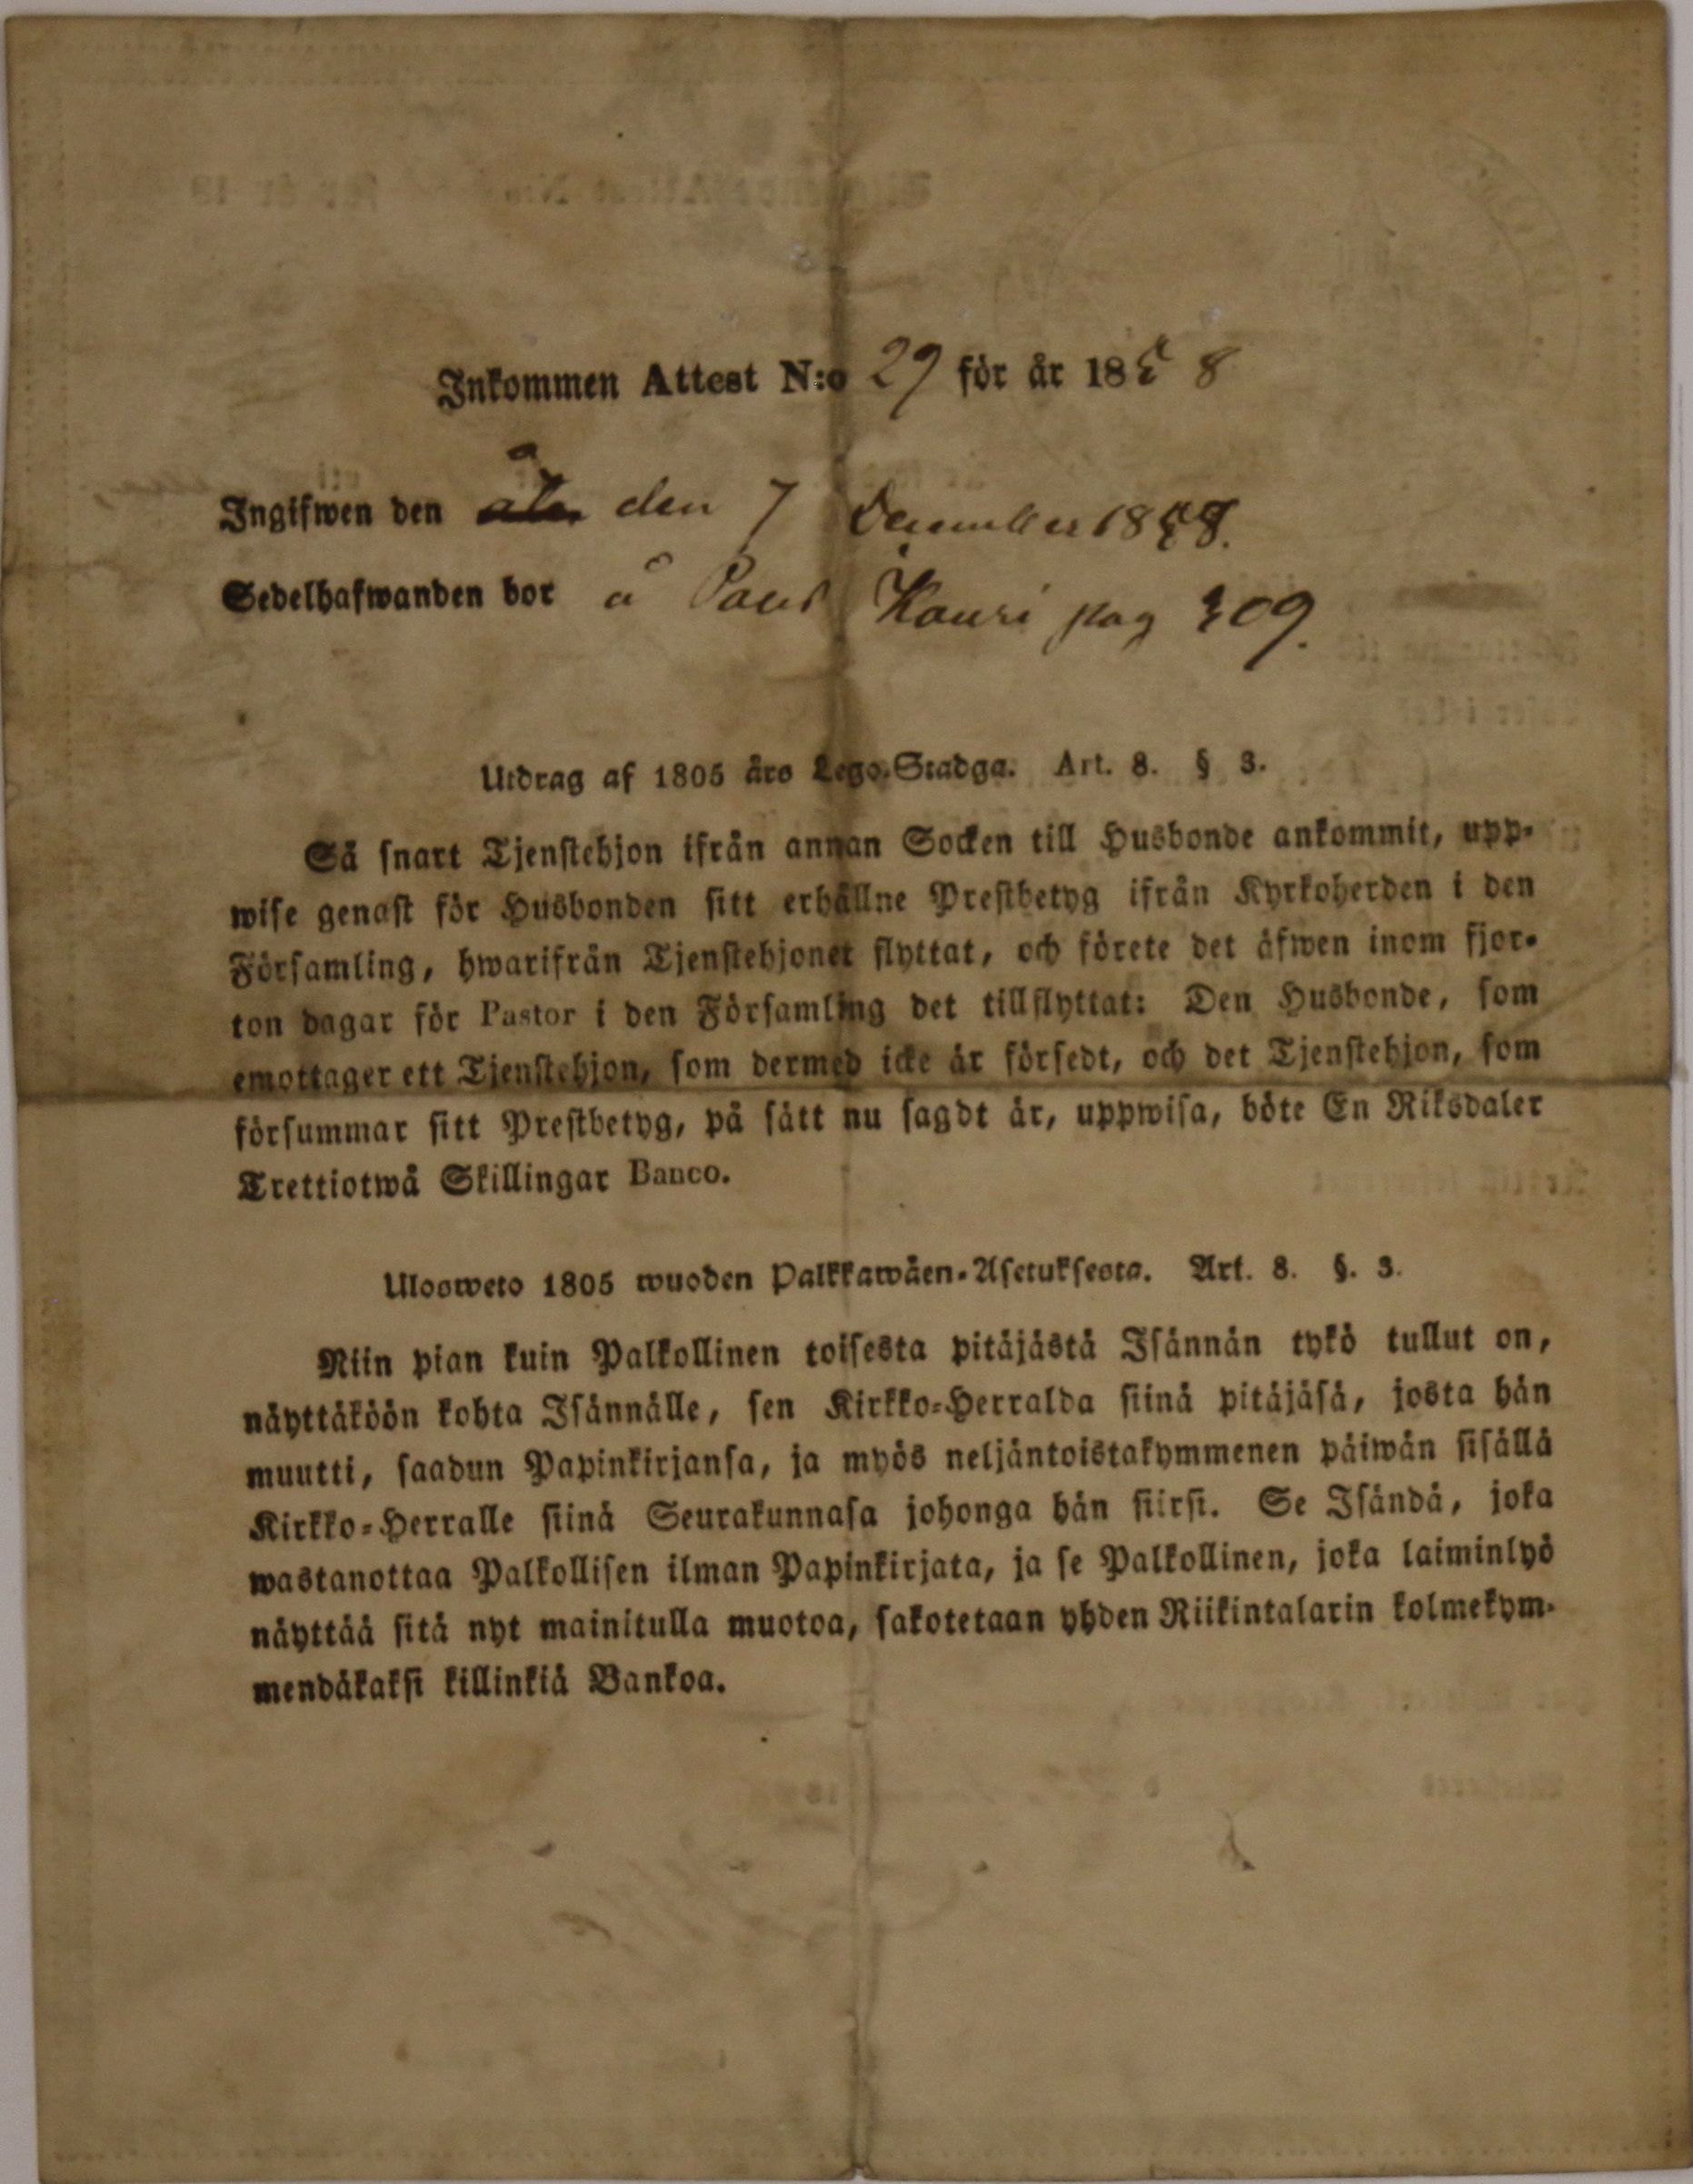 Inkommen Attest N:o 29 för år 18 8
Ingifwen den den 7 December 18 8.
Sedelhafwanden bor å Kauri pag 309.
Utdrag af 1805 års Lego-Stadga. Art. 8. § 3.
Så snart Tjenstehjon ifrån annan Socken till Husbonde ankommit, upp-
wise genast för Husbonden sitt erhållne Prestbetyg ifrån Kyrkoherden i den
Församling, hwarifrån Tjenstehjonet flyttat, och förete det äfwen inom fjor-
ton dagar för Pastor i den Församling det tillflyttat: Den Husbonde, som
emottager ett Tjenstehjon, som dermed icke är försedt, och det Tjenstehjon, som
försummar sitt Prestbetyg, på sätt nu sagdt är, uppwisa, böte En Riksdaler
Trettiotwå Skillingar Banco.
Ulosweto 1805 wuoden Palkkawäen-Asetuksesta. Art. 8. §. 3.
Niin pian kuin Palkollinen toisesta pitäjästä Isännän tykö tullut on,
näyttäköön kohta Isännälle, sen Kirkko-Herralda siinä pitäjäsä, josta hän
muutti, saadun Papinkirjansa, ja myös neljäntoistakymmenen päiwän sisällä
Kirkko-Herralle siinä Seurakunnasa johonga hän siirsi. Se Isändä, joka
wastanottaa Palkollisen ilman Papinkirjata, ja se Palkollinen, joka laiminlyö
näyttää sitä nyt mainitulla muotoa, sakotetaan yhden Riikintalarin kolmekym-
mendäkaksi killinkiä Bankoa.